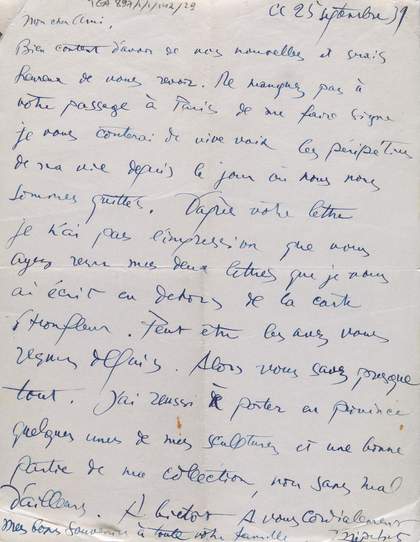 TGA 897/1/1/142/29
Ce 25 septembre 39
Mon cher Ami,
Bien content d'avoir de vos nouvelles et serais
heureux de vous revoir. Ne manquez pas à
votre passage à Paris de me faire signe
je vous conterai de vive voix les péripéties
de ma vie depuis le jour où nous nous
sommes quittés. D'après votre lettre
je n'ai pas l'impression que vous
ayez reçu mes deux lettres que je vous
ai écrit en dehors de la carte
d'Honfleur. Peut etre les avez vous
reçues depuis. Alors vous savez presque
tout. J'ai reussi à porter en province
quelques unes de mes sculptures et une bonne
partie de ma collection, non sans mal
d'ailleurs. A bientot A vous cordialement
Mes bons souvenirs à toute votre famille